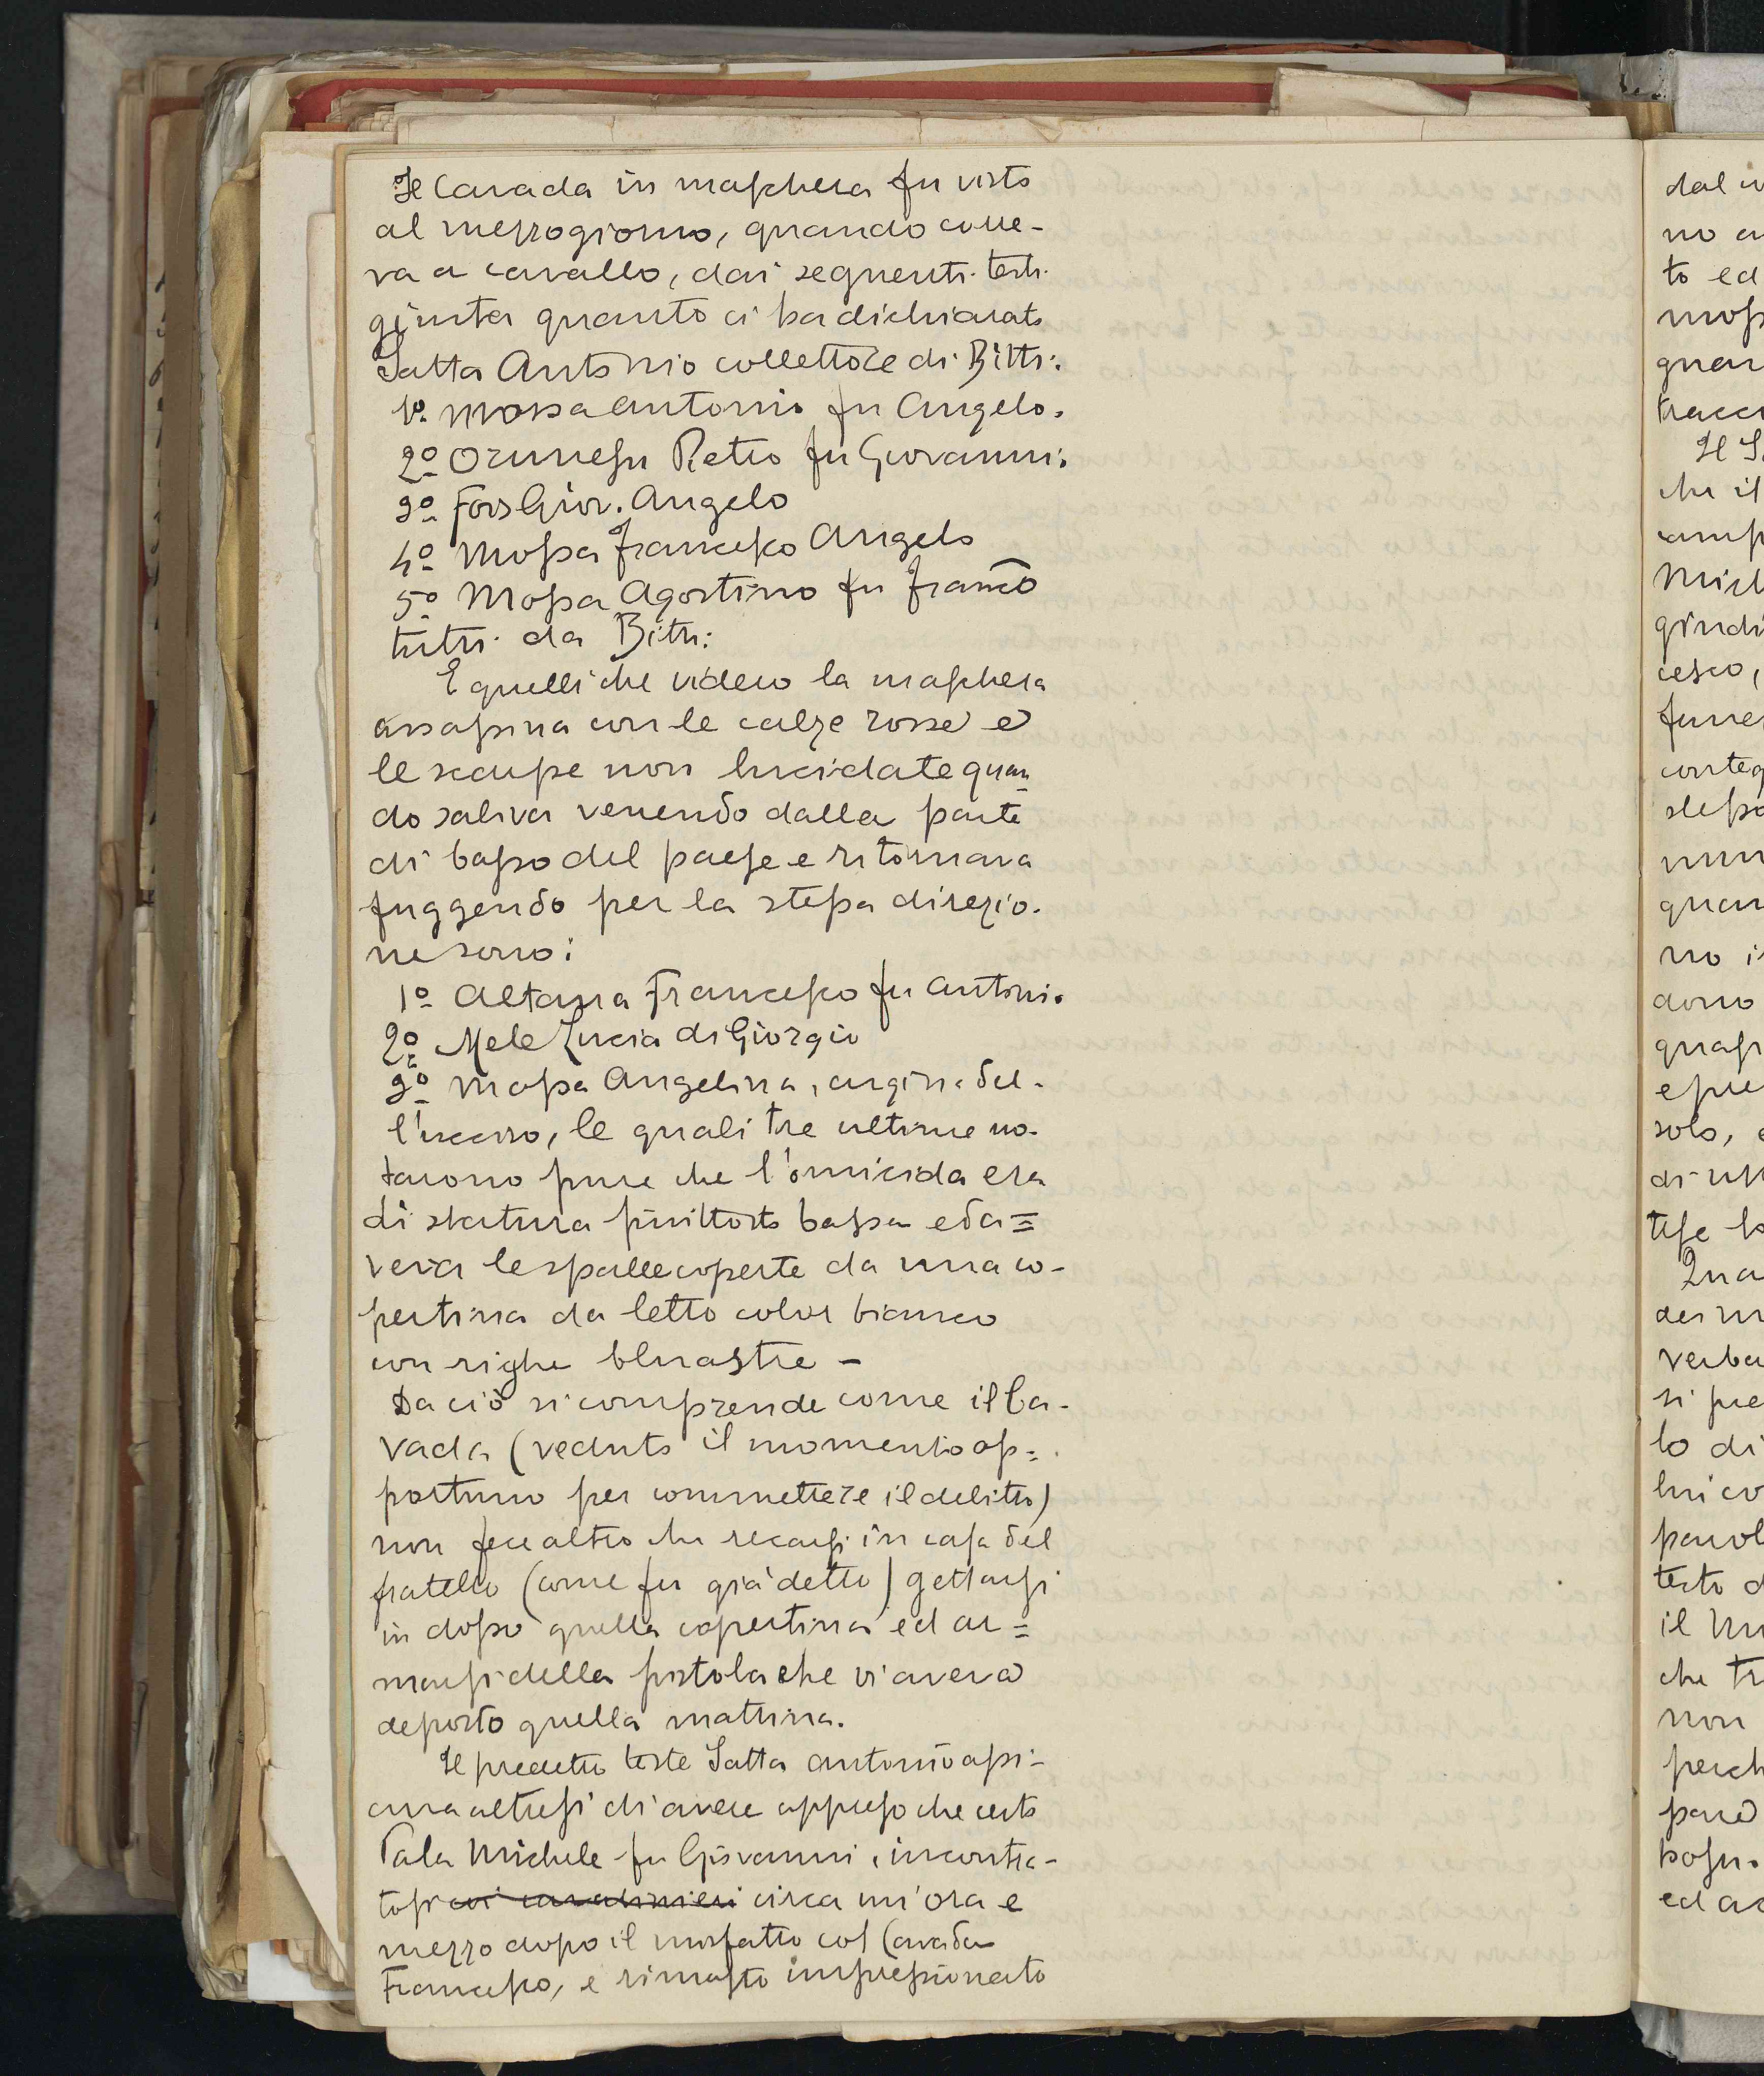 Il Cavada in maschera fu visto
al mezzogiorno, quando corre-
va a cavallo, dai seguenti testi
giusta quanto ci ha dichiarato
Satta Antonio collettore di Bitti:
1º Mossa Antonio fu Angelo.
2º Orunesu Pietro fu Giovanni.
3º Fois Giov. Angelo
4º Mossa Francesco Angelo
5º Mossa Agostino fu Franco
tutti da Bitti:
E quelli che videro la maschera
assassina con le calze rosse e
le scarpe non lucidate quan
do saliva venendo dalla parte
di basso del paese e ritornava
fuggendo per la stessa direzio-
ne sono:
1º Altana Francesco fu Antonio
2º Mele Lucia di Giorgio
3º Mossa Angelina, cugina del-
l'ucciso, le quali tre ultime no-
tarono pure che l'omicida era
di statura piuttosto bassa ed a=
veva le spalle coperte da una co-
pertina da letto color bianco
con righe bluastre -
Da ciò si comprende come il Ca-
vada (veduto il momento op=
portuno per commettere il delitto)
non fece altro che recarsi in casa del
fratello (come fu già detto) gettarsi
in dosso quella copertina ed ar=
marsi della pistola che vi aveva
deposto quella mattina.
Il precitto teste Satta Antonio assi-
cura altresì di avere appreso che certo
Pala Michele fu Giovanni, incontra-
tosi coi carabinieri circa un'ora e
mezzo dopo il misfatto col Cavada
Francesco, e rimasto impressionato
dal
no
to ed
che il
cesco,
quan
solo,
verba
lo di
il
che
non
perch
ed